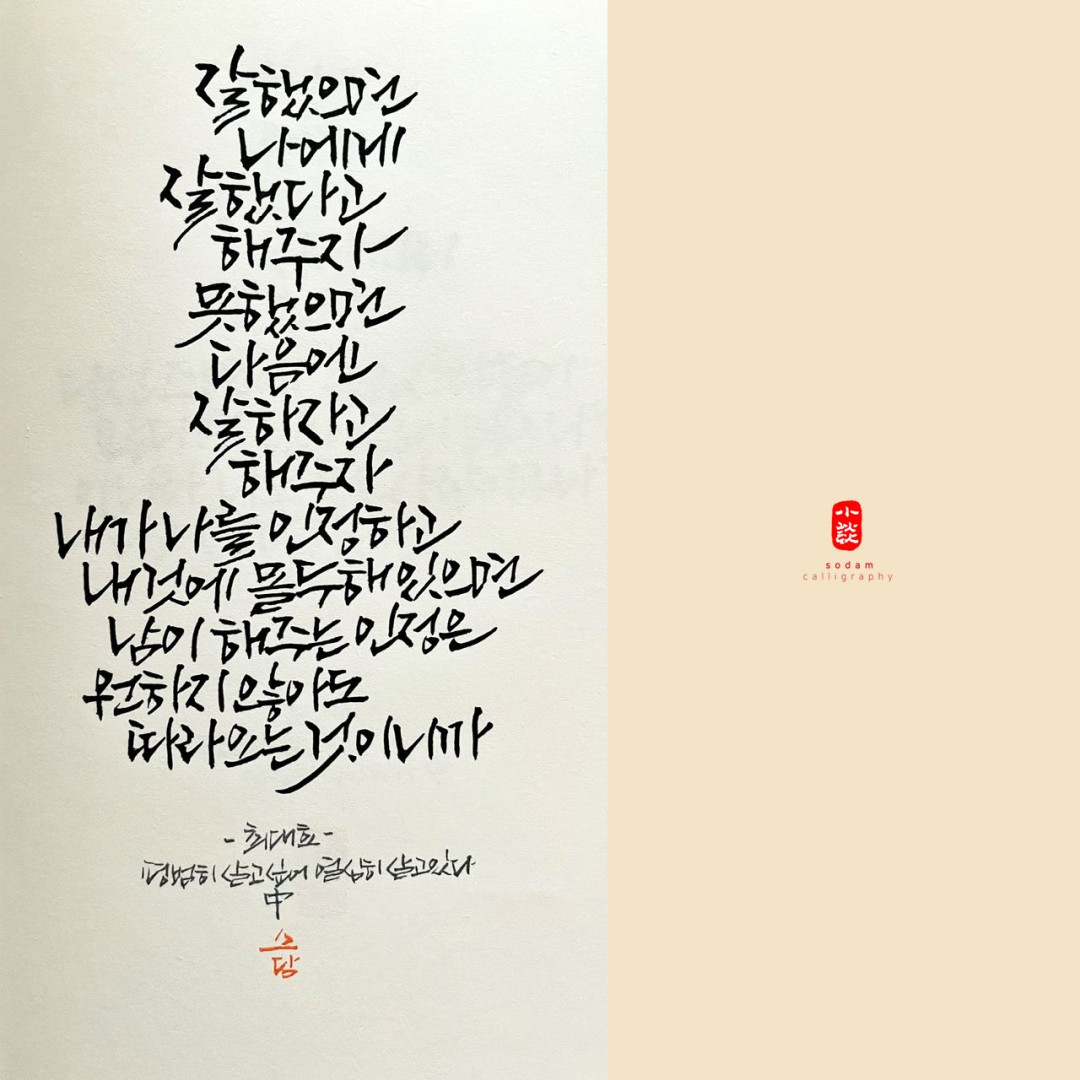 잘했으면
나에게
잘했다고
해주자
못했으면
다음엔
잘하자고
해주자
내가 나를 인정하고
내것에 몰두해있으면
남이 해주는 인정은
원하지 않아도
따라오는 것이니까
-최대호-
평범히 살고싶어 열심히 살고있다
中
소담
小談
sodam
calligraphy